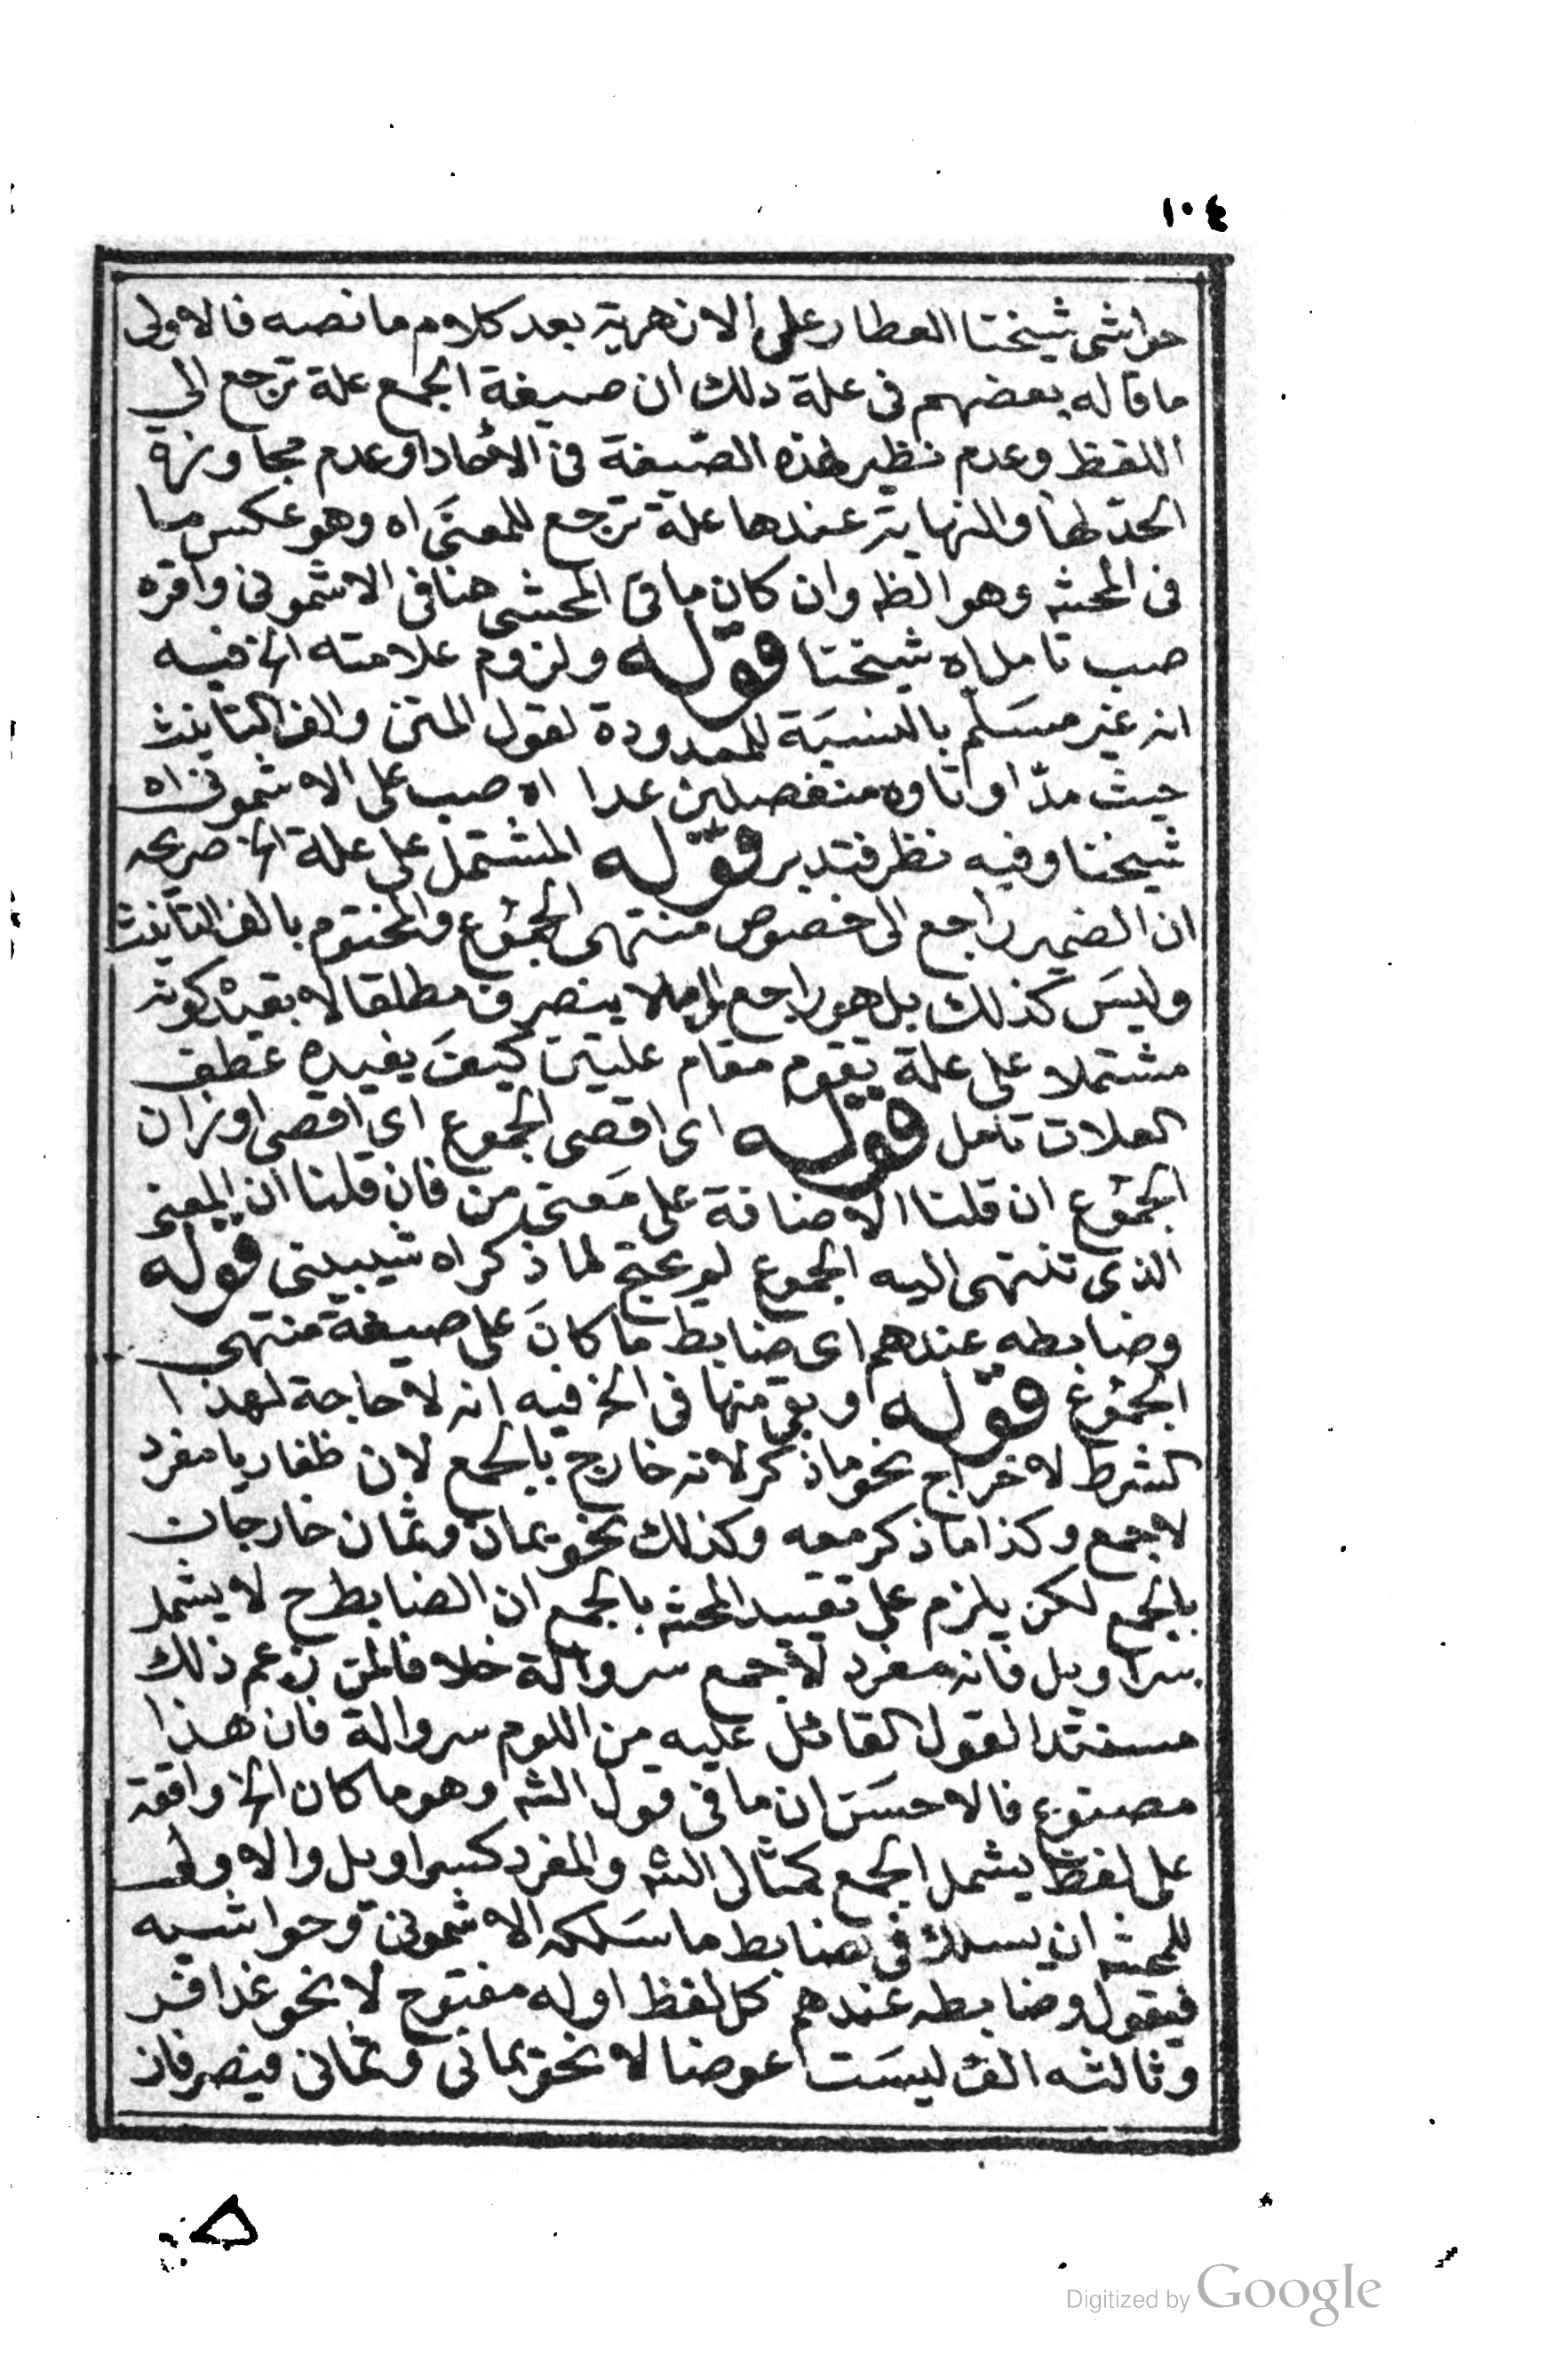 ١٠٤
حواشى شيخنا العطار على الازهرية بعد كلام ما نصه فالاولى
ما قاله بعضهم فى علة ذلك ان صيغة الجمع علة ترجع الى
اللفظ وعدم نظير لهذه الصيغة فى الآحاد او عدم مجاوزة
الحد لها والنهاية عندها علة ترجع للمعنى اه وهو عكس ما
فى المحشه وهو الظه وان كان ما فى المحشى هنا فى الاشمونى واقره
صب تامل اه شيخنا قوله ولزوم علامته الخ فيه
انه غير مسلم بالنسبة للممدودة لقول المتن والف التأنيث
حيث مدّا وتاوه منفصلين عدا اه صب على الاشمونى اه
شيخنا وفيه نظر فتدبر قوله المشتمل على علة الخ صريحه
ان الضمير راجع الى خصوص منتهى الجموع والمختوم بالف التأنيث
وليس كذلك بل هو راجع الى ما لا ينصرف مطلقا لا بقيد كونه
مشتملا على علة تقوم مقام علتين كيف يفيده عطف
العلات تامل قوله اى اقصى الجموع اى اقصى اوزان
الجموع ان قلنا الاضافة على معنى من فان قلنا ان المعنى
الذى تنتهى اليه الجموع لم يحتج لما ذكر اه شيبينى قوله
وضابطه عندهم اى ضابط ما كان على صيغة منتهى
الجموع قوله او بقى منها فى الخ فيه انه لا حاجة لهذا
الشرط لاخراج نحو ما ذكر لانه خارج بالجمع لان ظفاريا مفرد
لا جمع وكذا ما ذكر معه وكذلك نحو يمان وثمان خارجان
بالجمع لكن يلزم على تقييد المحشه بالجمع ان الضابط ح لا يشمل
سراويل فانه مفرد لا جمع سروالة خلافا لمن زعم ذلك
مستندا لقول القائل عليه من اللوم سروالة فان هذا
مصنوع فالاحسن ان ما فى قول الشه وهو ما كان الخ واقعة
على لفظ يشمل الجمع كمثال الشه والمفرد كسراويل والاولى
للمحشه ان يسلك فى الضابط ما سلكه الاشمونى وحواشيه
فيقول وضابطه عندهم كل لفظ اوله مفتوح لا نحو غدافر
وثالثه الف ليست عوضا لا نحو يمانى وثمانى فينصرفان
Digitized by Google